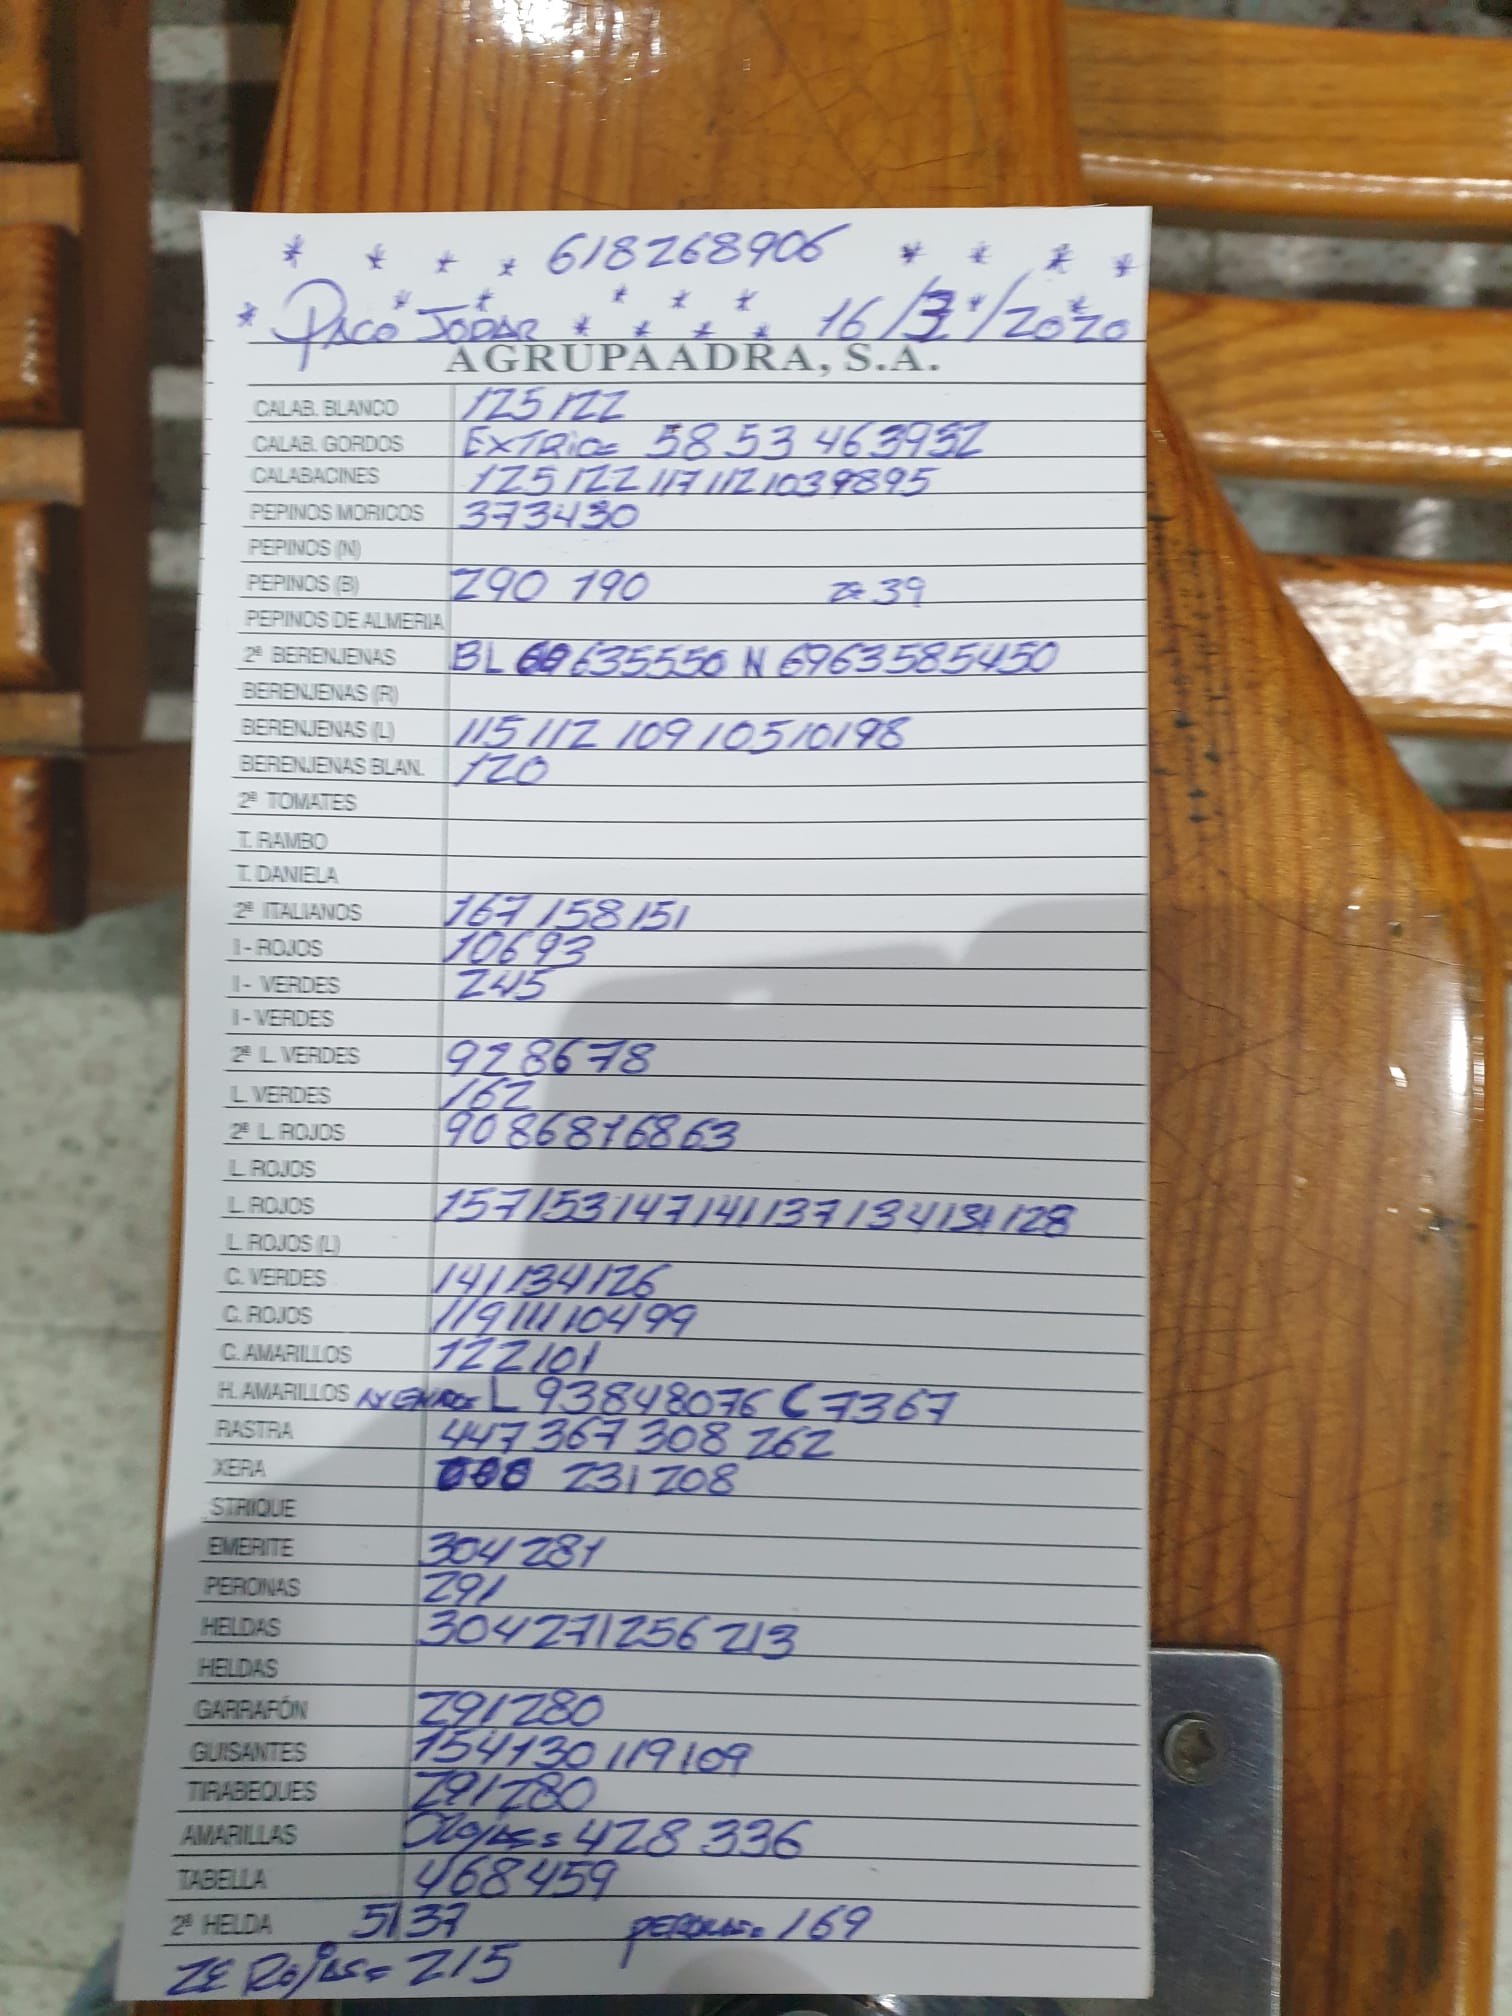 * * * * 618268906 * * * *
* PACO JODAR * * * * * * * * * 16/3/2020
AGRUPAADRA, S.A.
CALAB. BLANCO 125 122
CALAB. GORDOS 58 53 46 39 32
CALABACINES 125 122 117 112 103 98 95
PEPINOS MORICOS 37 34 30
PEPINOS (N)
PEPINOS (B) 290 190 2ª 39
PEPINOS DE ALMERIA
2ª BERENJENAS BL 63 55 50 N 69 63 58 54 50
BERENJENAS (R)
BERENJENAS (L) 115 112 109 105 101 98
BERENJENAS BLAN. 120
2ª TOMATES
T. RAMBO
T. DANIELA
2ª ITALIANOS 167 158 151
I - ROJOS 106 93
I - VERDES 245
I - VERDES
2ª L. VERDES 92 86 78
L. VERDES 162
2ª L. ROJOS 90 86 81 68 63
L. ROJOS
L. ROJOS 157 153 147 141 137 134 131 128
L. ROJOS (L)
C. VERDES 141 134 126
C. ROJOS 119 111 104 99
C. AMARILLOS 122 101
H. AMARILLOS L 93 84 80 76 C 73 67
RASTRA 447 367 308 262
XERA 231 208
STRIQUE
EMERITE 304 281
PERONAS 291
HELDAS 304 271 256 213
HELDAS
GARRAFÓN 291 280
GUISANTES 154 130 119 109
TIRABEQUES 291 280
AMARILLAS ROJAS = 428 336
TABELLA 468 459
2ª HELDA 51 37 PERONAS = 169
ZE ROJAS = 215